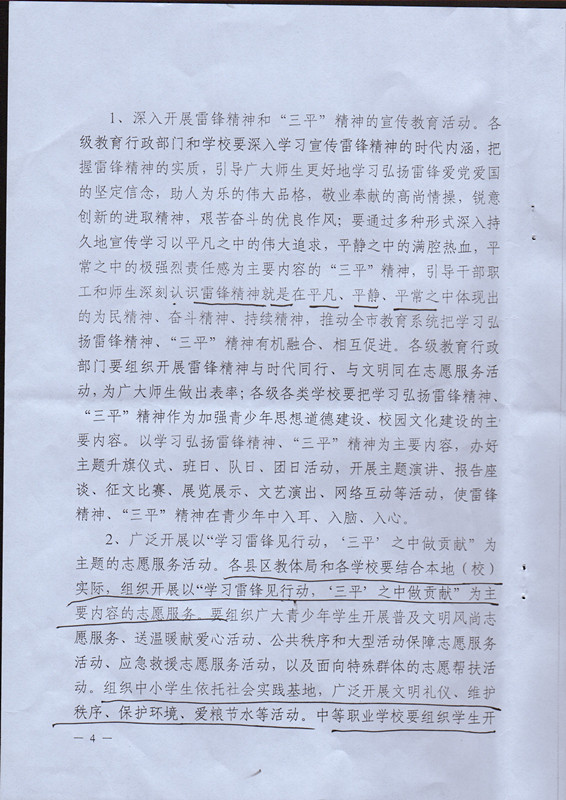 1、深入开展雷锋精神和“三平”精神的宣传教育活动。各
级教育行政部门和学校要深入学习宣传雷锋精神的时代内涵，把
握雷锋精神的实质，引导广大师生更好地学习弘扬雷锋爱党爱国
的坚定信念，助人为乐的伟大品格，敬业奉献的高尚情操，锐意
创新的进取精神，艰苦奋斗的优良作风；要通过多种形式深入持
久地宣传学习以平凡之中的伟大追求，平静之中的满腔热血，平
常之中的极强烈责任感为主要内容的“三平”精神，引导干部职
工和师生深刻认识雷锋精神就是在平凡、平静、平常之中体现出
的为民精神、奋斗精神、持续精神，推动全市教育系统把学习弘
扬雷锋精神、“三平”精神有机融合、相互促进。各级教育行政
部门要组织开展雷锋精神与时代同行、与文明同在志愿服务活
动，为广大师生做出表率；各级各类学校要把学习弘扬雷锋精神、
“三平”精神作为加强青少年思想道德建设、校园文化建设的主
要内容。以学习弘扬雷锋精神、“三平”精神为主要内容，办好
主题升旗仪式、班日、队日、团日活动，开展主题演讲、报告座
谈、征文比赛、展览展示、文艺演出、网络互动等活动，使雷锋
精神、“三平”精神在青少年中入耳、入脑、入心。
2、广泛开展以“学习雷锋见行动，‘三平’之中做贡献”为
主题的志愿服务活动。各县区教体局和各学校要结合本地（校）
实际，组织开展以“学习雷锋见行动，‘三平’之中做贡献”为主
要内容的志愿服务、要组织广大青少年学生开展普及文明风尚志
愿服务、送温暖献爱心活动、公共秩序和大型活动保障志愿服务
活动、应急救援志愿服务活动，以及面向特殊群体的志愿帮扶活
动。组织中小学生依托社会实践基地，广泛开展文明礼仪、维护
秩序、保护环境、爱粮节水等活动。中等职业学校要组织学生开
— 4 —